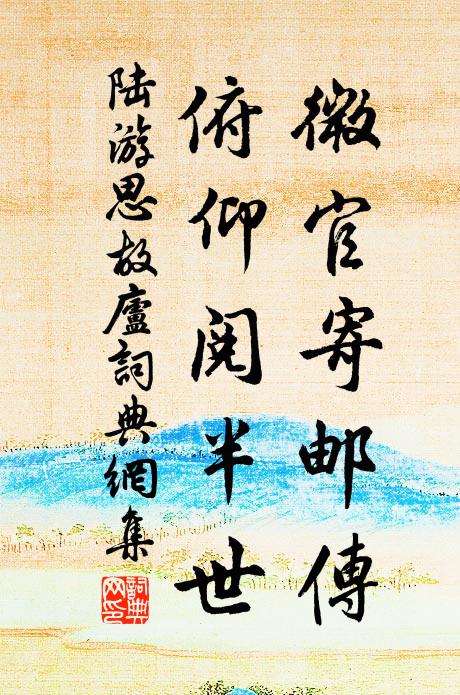 微官寄邮傳
俯仰閱半世
陆游思故廬詞典網集
詞典网印